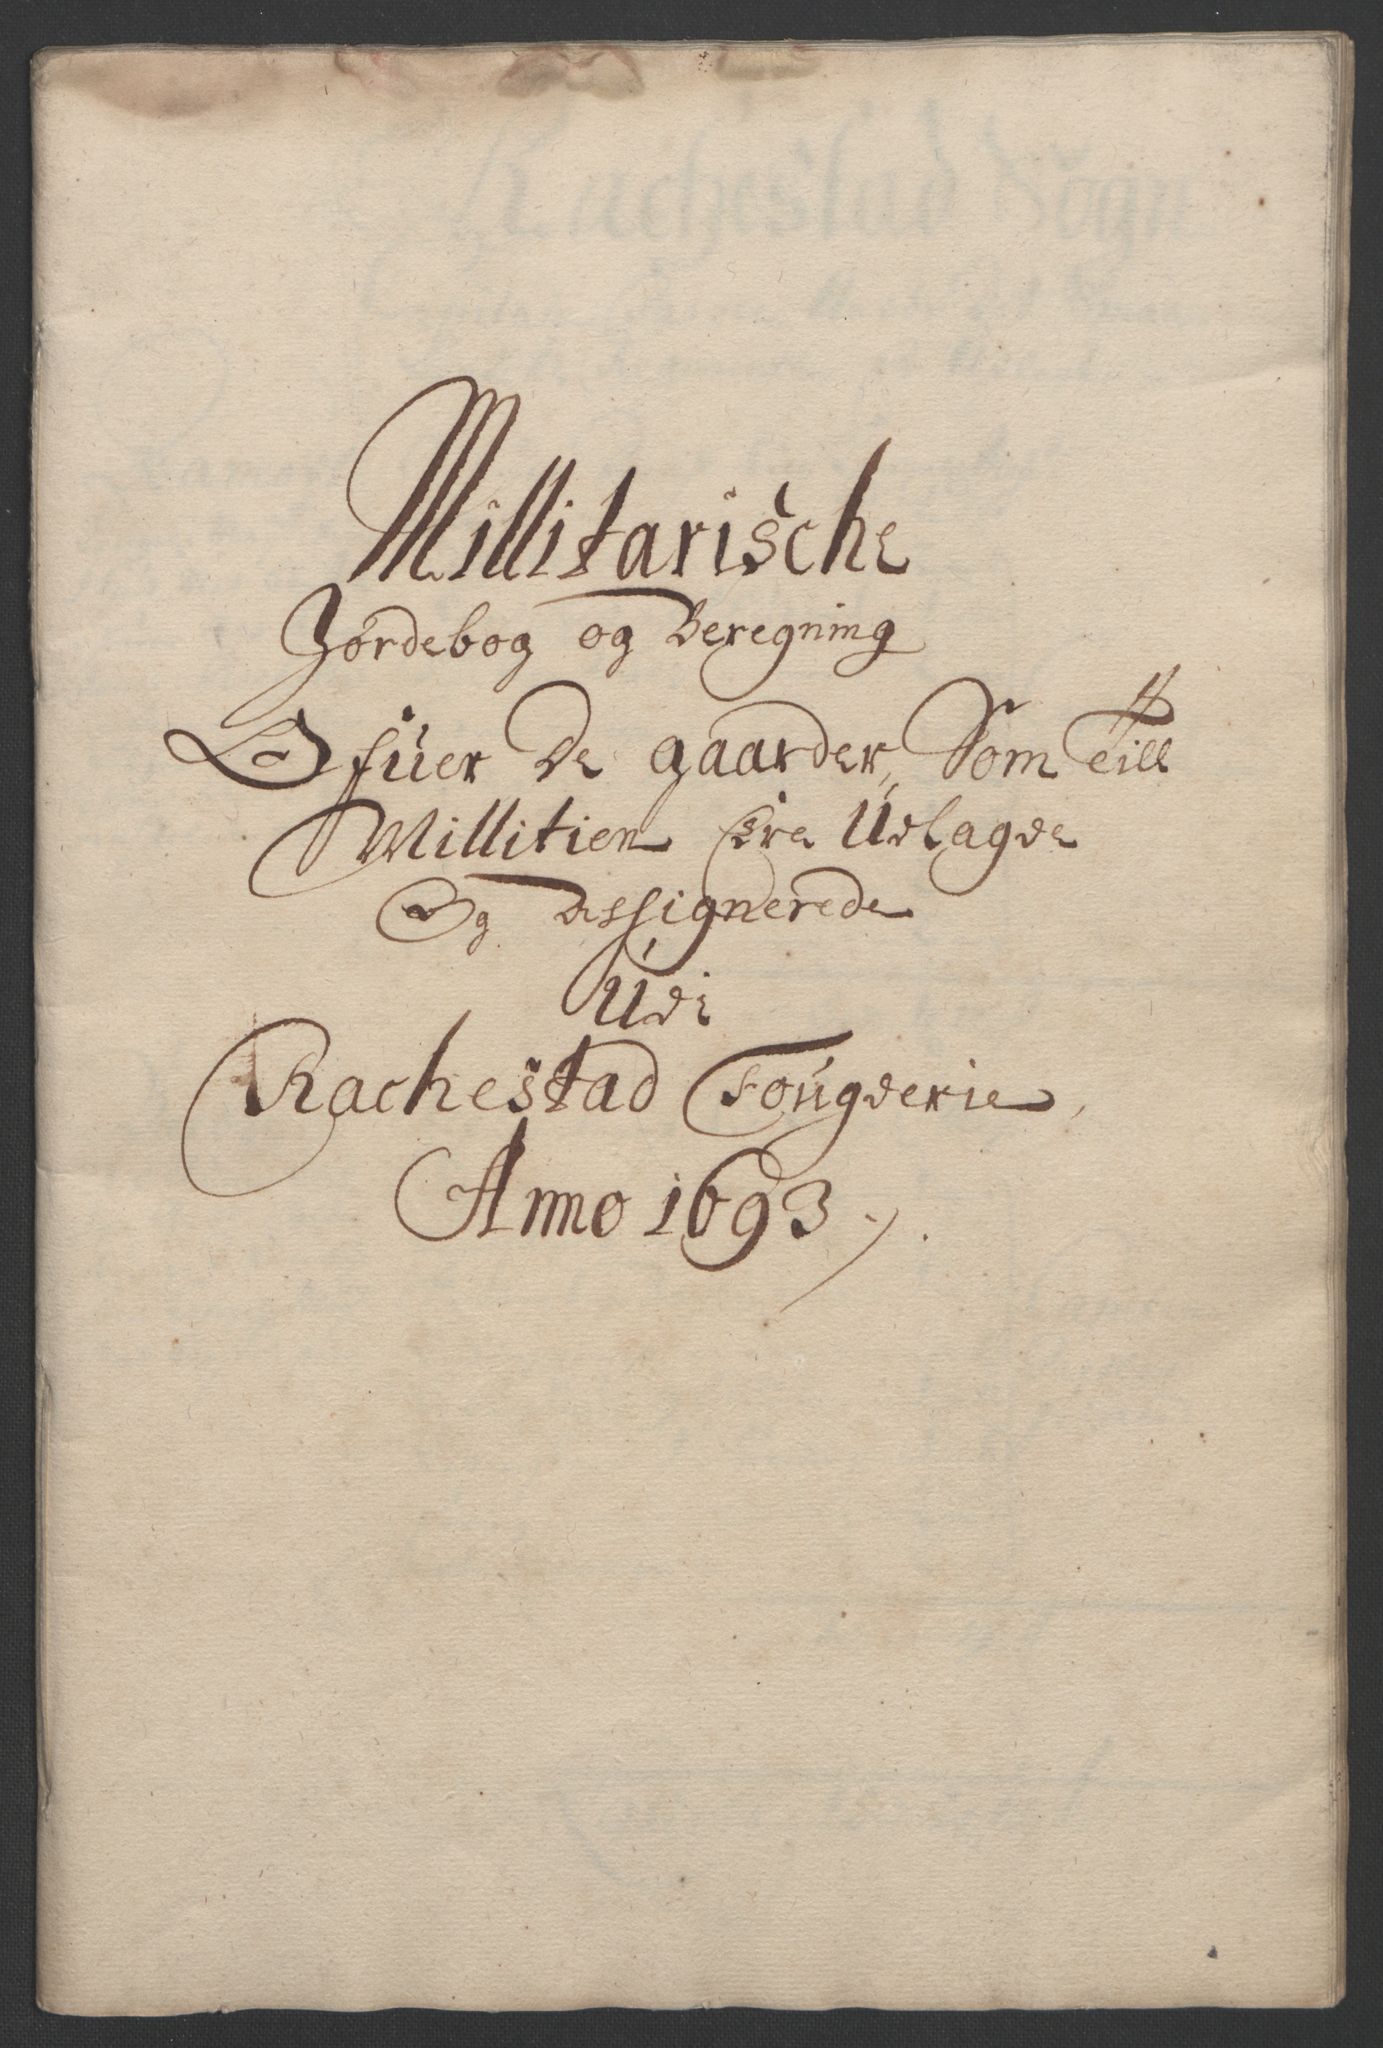 Millitarische
Jordebog og Beregning
Ofuer De gaarder, Som Till
Millitien Ere Udlagde
Og Assignerede
Udi
Rachestad Fougderie,
Anno 1693